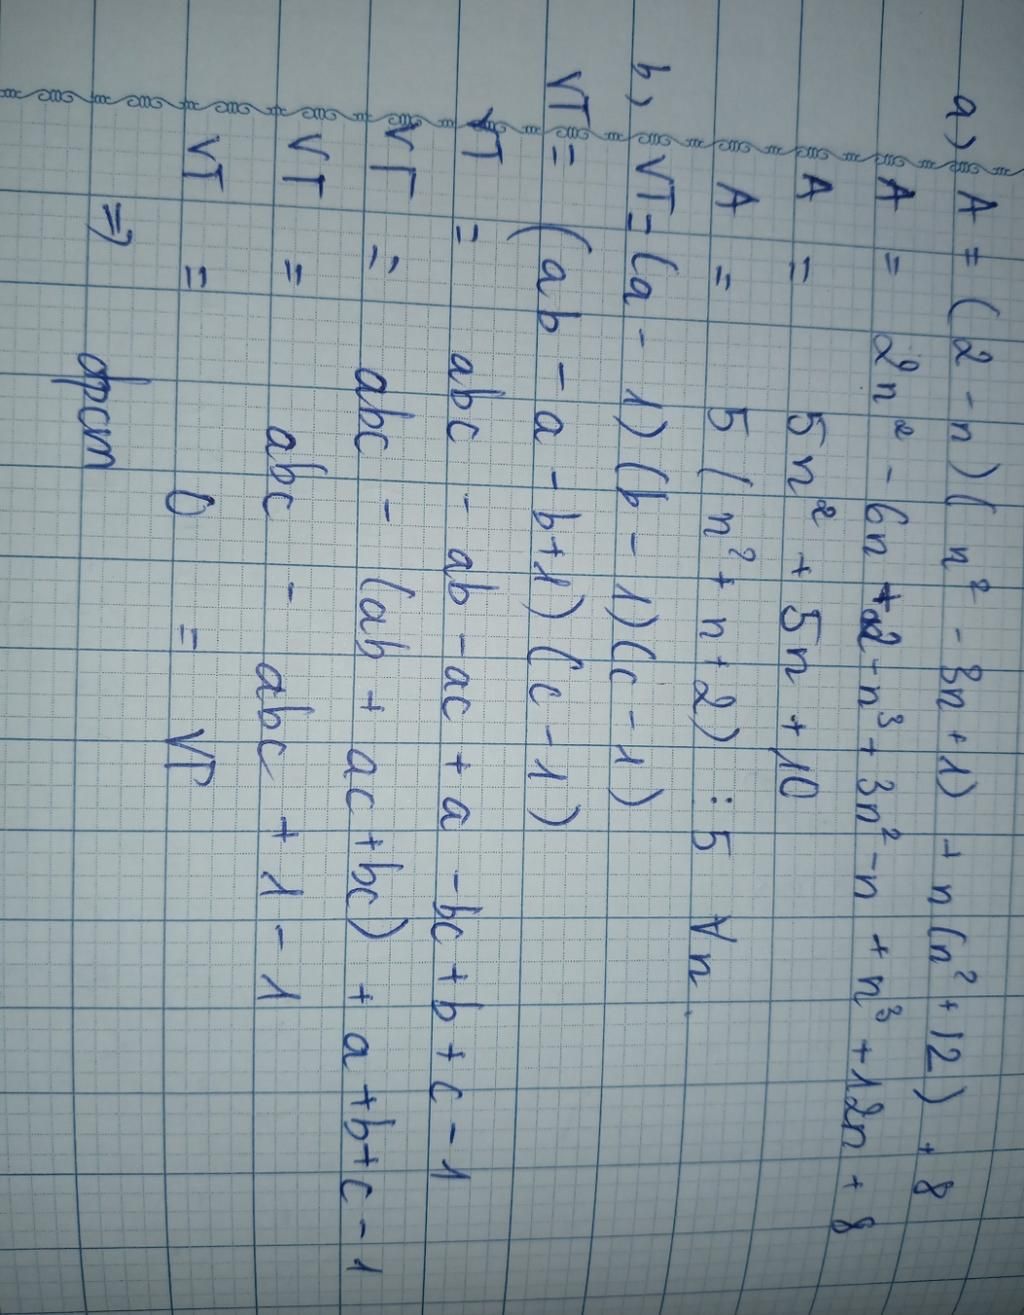 a) A = (2 - n)(n² - 3n + 1) + n(n² + 12) + 8
A = 2n² - 6n + 2 - n³ + 3n² - n + n³ + 12n + 8
A = 5n² + 5n + 10
A = 5(n² + n + 2) ⋮ 5 ∀n.
b) VT = (a - 1)(b - 1)(c - 1)
VT = (ab - a - b + 1)(c - 1)
VT = abc - ab - ac + a - bc + b + c - 1
VT = abc - (ab + ac + bc) + a + b + c - 1
VT = abc - abc + 1 - 1
VT = 0 = VP
⇒ đpcm